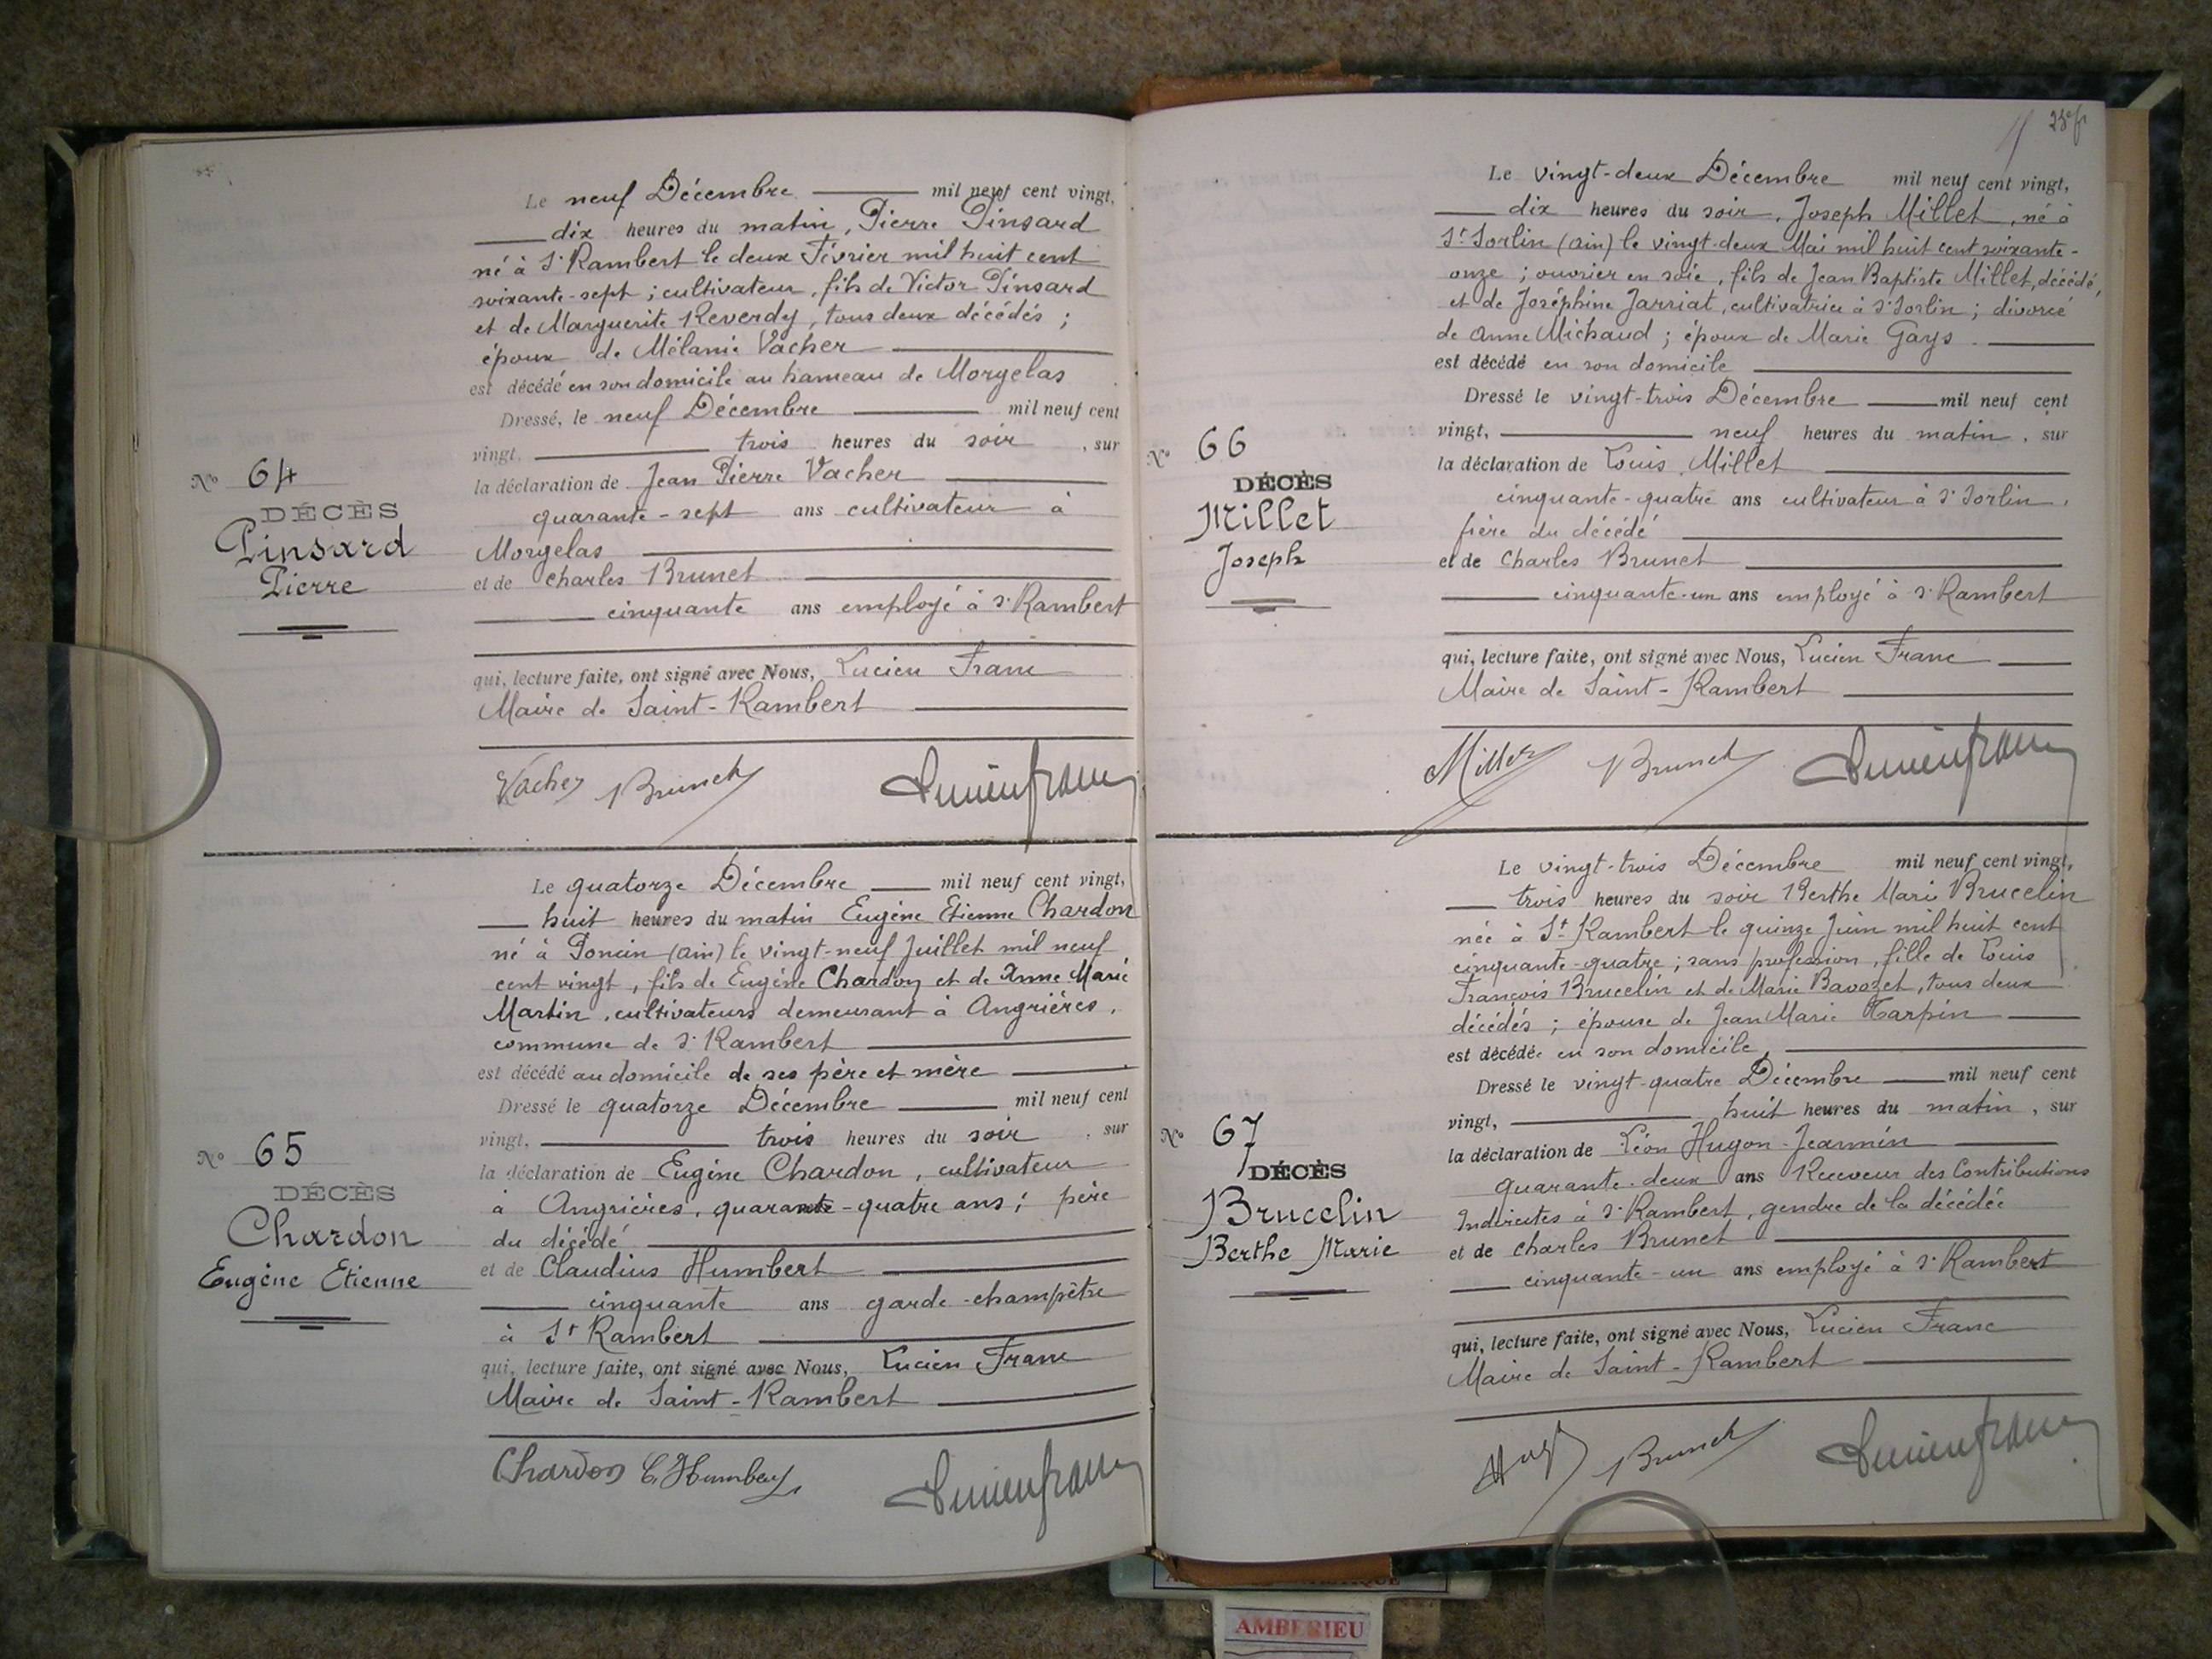 Le neuf Décembre mil neuf cent vingt,
dix heures du matin, Pierre Pinsard
né à St Rambert le deux Février mil huit cent
soixante-sept ; cultivateur, fils de Victor Pinsard
et de Marguerite Reverdy, tous deux décédés ;
époux de Mélanie Vacher
est décédé en son domicile au hameau de Morgelas
Dressé, le neuf Décembre mil neuf cent
vingt, trois heures du soir, sur
la déclaration de Jean Pierre Vacher
quarante-sept ans cultivateur à
Morgelas
et de Charles Brunet
cinquante ans employé à St Rambert
qui, lecture faite, ont signé avec Nous, Lucien Franc
Maire de Saint-Rambert
Nº 64
DÉCÈS
Pinsard
Pierre
Vacher Brunet Lucien franc
Le quatorze Décembre mil neuf cent vingt,
huit heures du matin Eugène Etienne Chardon
né à Poncin (Ain) le vingt-neuf Juillet mil neuf
cent vingt, fils de Eugène Chardon et de Anne Marie
Martin, cultivateurs demeurant à Angrières,
commune de St Rambert
est décédé au domicile de ses père et mère
Dressé le quatorze Décembre mil neuf cent
vingt, trois heures du soir, sur
la déclaration de Eugène Chardon, cultivateur
à Angrières, quarante-quatre ans ; père
du décédé
et de Claudius Humbert
cinquante ans garde-champêtre
à St Rambert
qui, lecture faite, ont signé avec Nous, Lucien Franc
Maire de Saint-Rambert
Nº 65
DÉCÈS
Chardon
Eugène Etienne
Chardon C. Humbert Lucien franc
Le vingt-deux Décembre mil neuf cent vingt,
dix heures du soir, Joseph Millet, né à
St Sorlin (Ain) le vingt-deux Mai mil huit cent soixante-
onze ; ouvrier en soie, fils de Jean Baptiste Millet, décédé,
et de Joséphine Jarriat, cultivatrice à St Sorlin ; divorcé
de Anne Michaud ; époux de Marie Gays
est décédé en son domicile
Dressé le vingt-trois Décembre mil neuf cent
vingt, neuf heures du matin, sur
la déclaration de Louis Millet
cinquante-quatre ans cultivateur à St Sorlin,
frère du décédé
et de Charles Brunet
cinquante-un ans employé à St Rambert
qui, lecture faite, ont signé avec Nous, Lucien Franc
Maire de Saint-Rambert
Nº 66
DÉCÈS
Millet
Joseph
Millet Brunet Lucien franc
Le vingt-trois Décembre mil neuf cent vingt,
trois heures du soir Berthe Marie Brucelin
née à St Rambert le quinze Juin mil huit cent
cinquante-quatre ; sans profession, fille de Louis
François Brucelin et de Marie Bavozet, tous deux
décédés ; épouse de Jean Marie Tarpin
est décédée en son domicile,
Dressé le vingt-quatre Décembre mil neuf cent
vingt, huit heures du matin, sur
la déclaration de Léon Hugon-Jeannin
quarante-deux ans Receveur des Contributions
Indirectes à St Rambert, gendre de la décédée
et de Charles Brunet
cinquante-un ans employé à St Rambert
qui, lecture faite, ont signé avec Nous, Lucien Franc
Maire de Saint-Rambert
Nº 67
DÉCÈS
Brucelin
Berthe Marie
Brunet Lucien franc
AMBERIEU